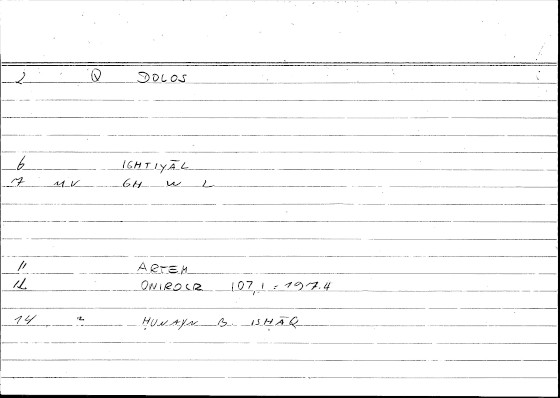 2 Q DOLOS
6 IGHTIYĀL
7 MV GH W L
11 ARTEM
12 ONIROCR 107,1 = 197.4
14 = ḤUNAYN B ISḤĀQ